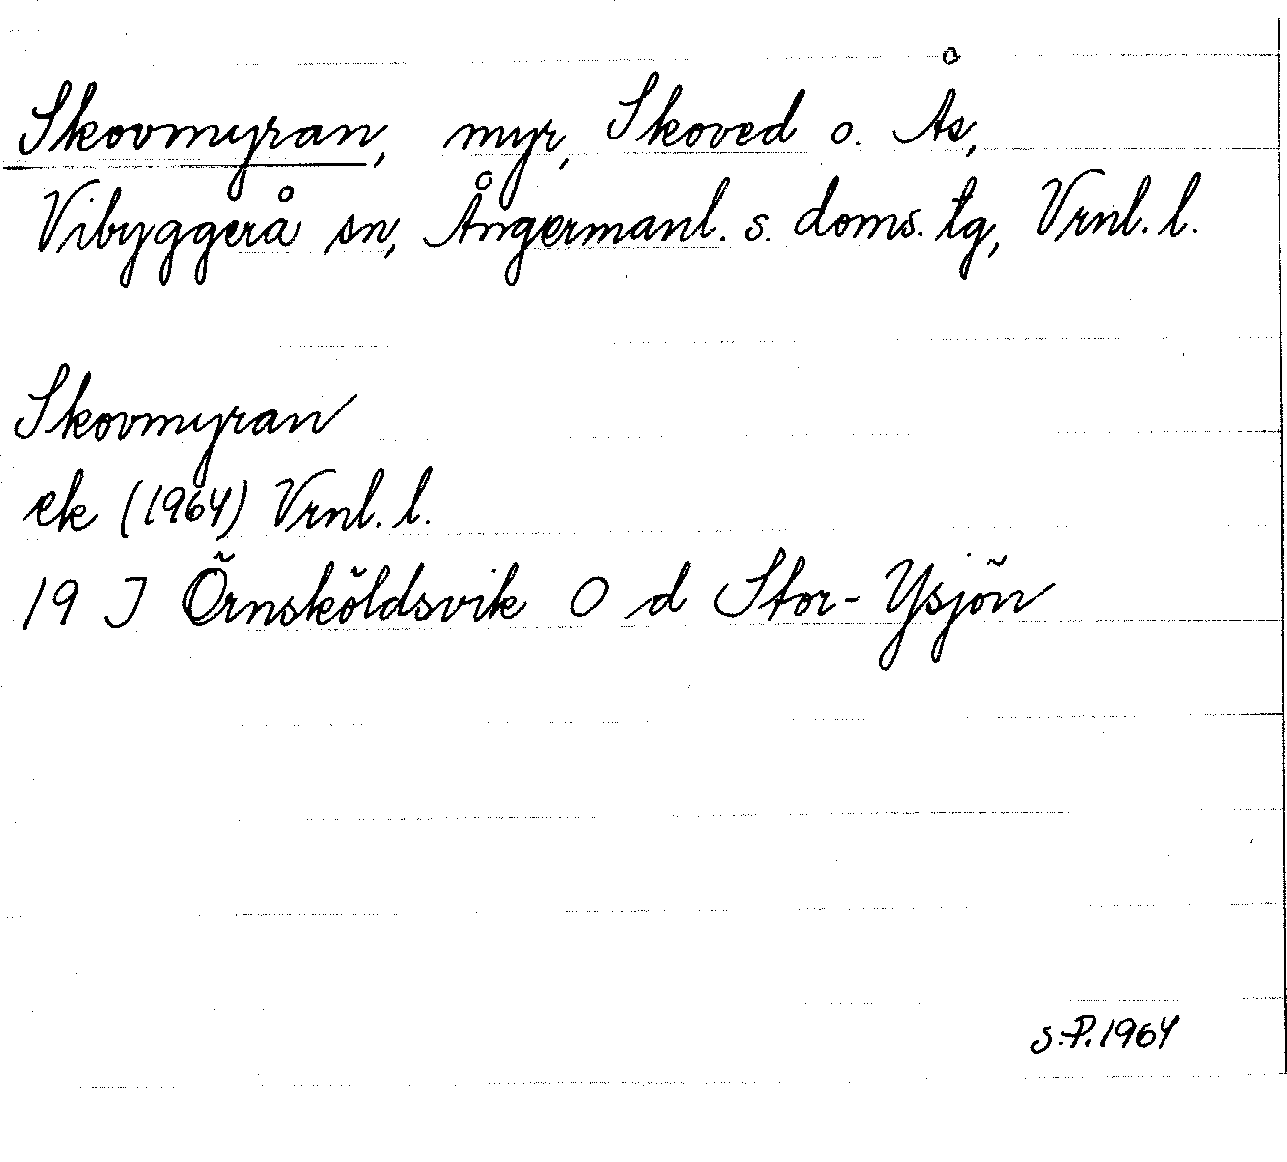 Skovmyran, myr, Skoved o. Ås,
Vibyggerå sn, Ångermanl. s. doms. tg, Vrnl. l.
Skovmyran
ek (1964) Vrnl. l.
19 J Örnsköldsvik O d Stor-Ysjön
S.P. 1964